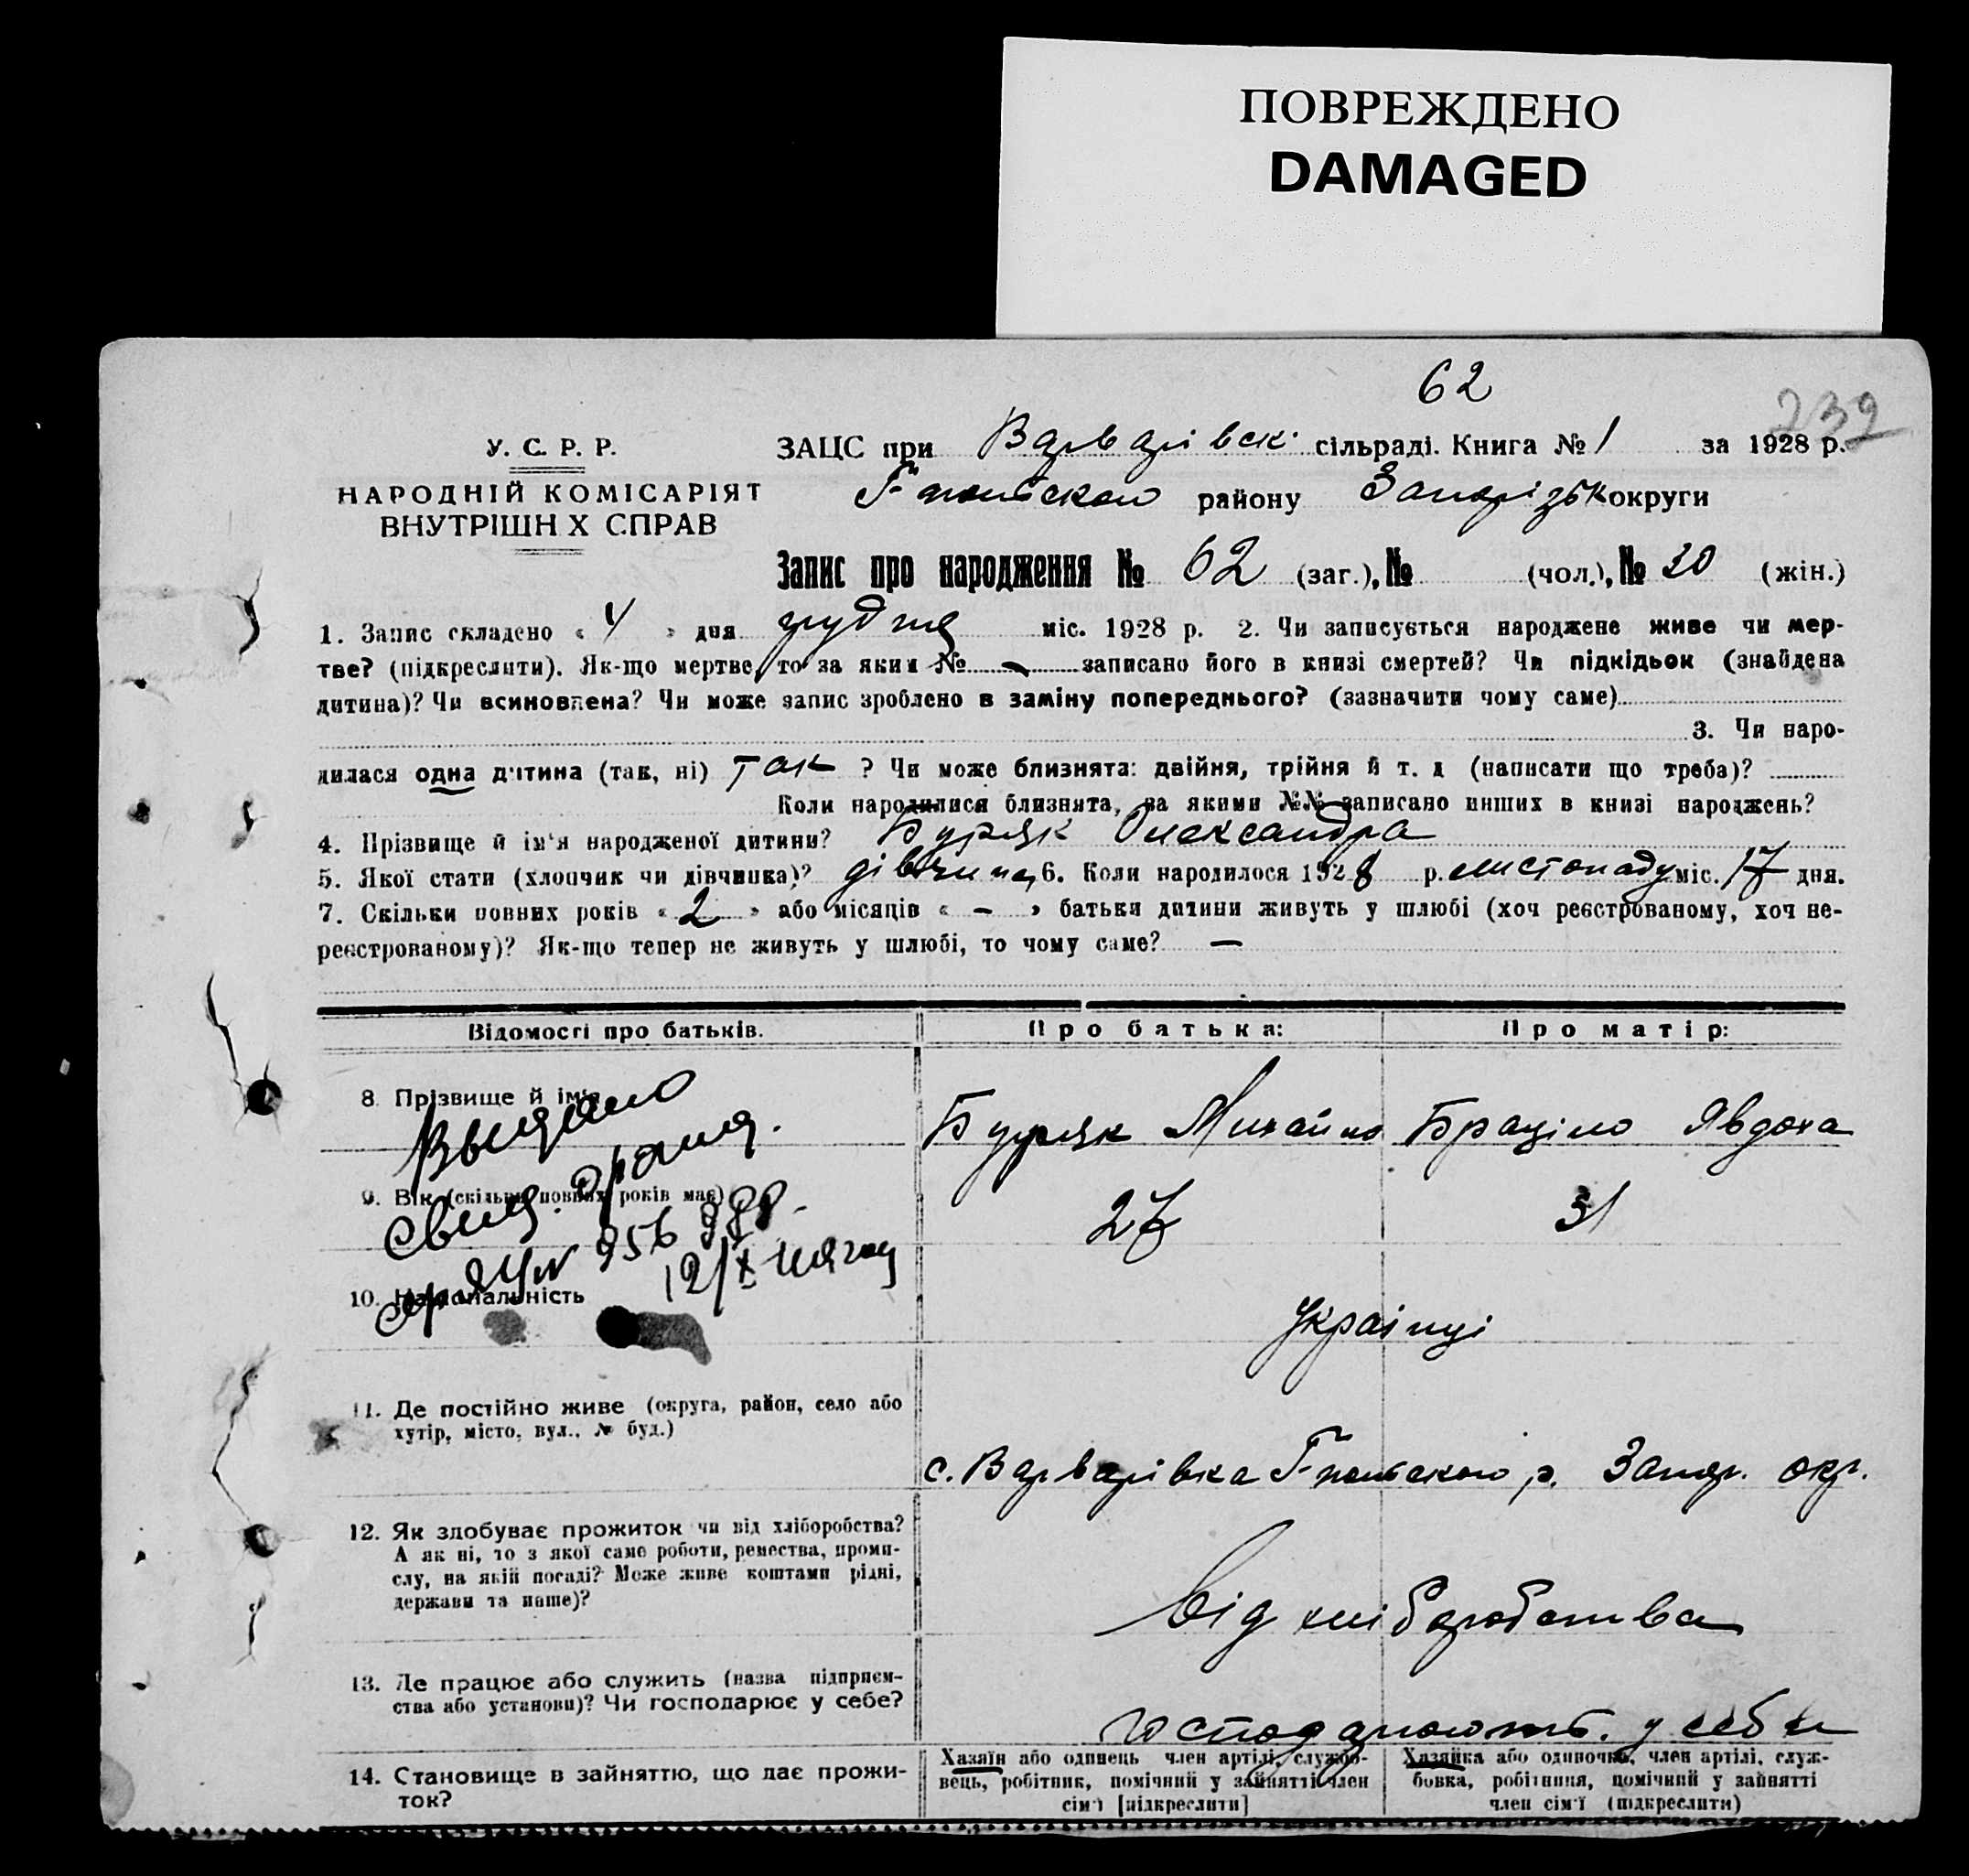 ПОВРЕЖДЕНО
DAMAGED
62
232
У. С. Р. Р.
НАРОДНІЙ КОМІСАРІЯТ
ВНУТРІШН Х СПРАВ
ЗАЦС при Варварівск. сільраді. Книга № 1 за 1928 р.
Г-польского району Запорізьк округи
Запис про народження № 62 (заг.), № (чол.), № 20 (жін.)
1. Запис складено « 4 » дня грудня міс. 1928 р. 2. Чи записується народжене живе чи мер-
тве? (підкреслити). Як-що мертве, то за яким № - записано його в книзі смертей? Чи підкідьок (знайдена
дитина)? Чи всиновлена? Чи може запис зроблено в заміну попереднього? (зазначити чому саме)
3. Чи наро-
дилася одна дитина (так, ні) так ? Чи може близнята: двійня, трійня й т. д (написати що треба)?
Коли народилися близнята, за якими №№ записано инших в книзі народжень?
4. Прізвище й ім'я народженої дитини? Буряк Олександра
5. Якої стати (хлопчик чи дівчинка)? дівчина 6. Коли народилося 1928 р. листопаду міс. 17 дня.
7. Скільки повних років « 2 » або місяців « - » батьки дитини живуть у шлюбі (хоч реєстрованому, хоч не-
реєстрованому)? Як-що тепер не живуть у шлюбі, то чому саме? —
Відомості про батьків.
Про батька:
Про матір:
8. Прізвище й ім'я
Буряк Михайло
Браціло Явдоха
9. Вік (скільки повних років має)
27
31
10. Національність
Українці
11. Де постійно живе (округа, район, село або
хутір, місто, вул., № буд.)
с. Варварівка Г-польского р. Запор. окр.
12. Як здобуває прожиток чи від хліборобства?
А як ні, то з якої саме роботи, ремества, проми-
слу, на якій посаді? Може живе коштами рідні,
держави та инше)?
Від хліборобства
13. Де працює або служить (назва підприєм-
ства або установи)? Чи господарює у себе?
господарюють у себе
14. Становище в зайняттю, що дає прожи-
ток?
Хазяїн або одинець член артілі, службо-
вець, робітник, помічний у зайнятті член
сім'ї [підкреслити]
Хазяйка або одиночка, член артілі, служ-
бовка, робітниця, помічний у зайнятті
член сім'ї (підкреслити)